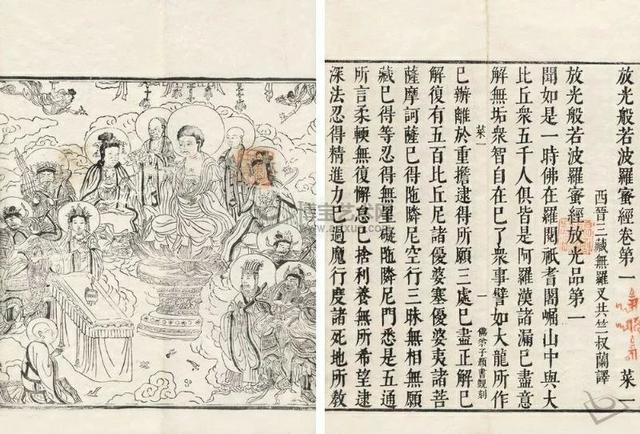 放光般若波羅蜜經卷第一 菜一
西晉三藏無羅叉共竺叔蘭譯
放光般若波羅蜜經放光品第一
聞如是一時佛在羅閱祇耆闍崛山中與大
比丘衆五千人俱皆是阿羅漢諸漏已盡意
解無垢衆智自在已了衆事譬如大龍所作
菜一 一
已辦離於重擔逮得所願三處已盡正解已
解復有五百比丘尼諸優婆塞優婆夷諸菩
薩摩訶薩已得陁隣尼空行三昧無相無願
藏已得等忍得無罣礙陁隣尼門悉是五通
所言柔輭無復懈怠已捨利養無所希望逮
深法忍得精進力已過魔行度諸死地所教